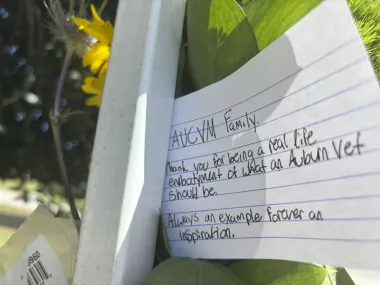 AUCVM Family,
Thank you for being a real life
embodyment of what an Auburn Vet
should be.
Always an example forever an
inspiration.
8960